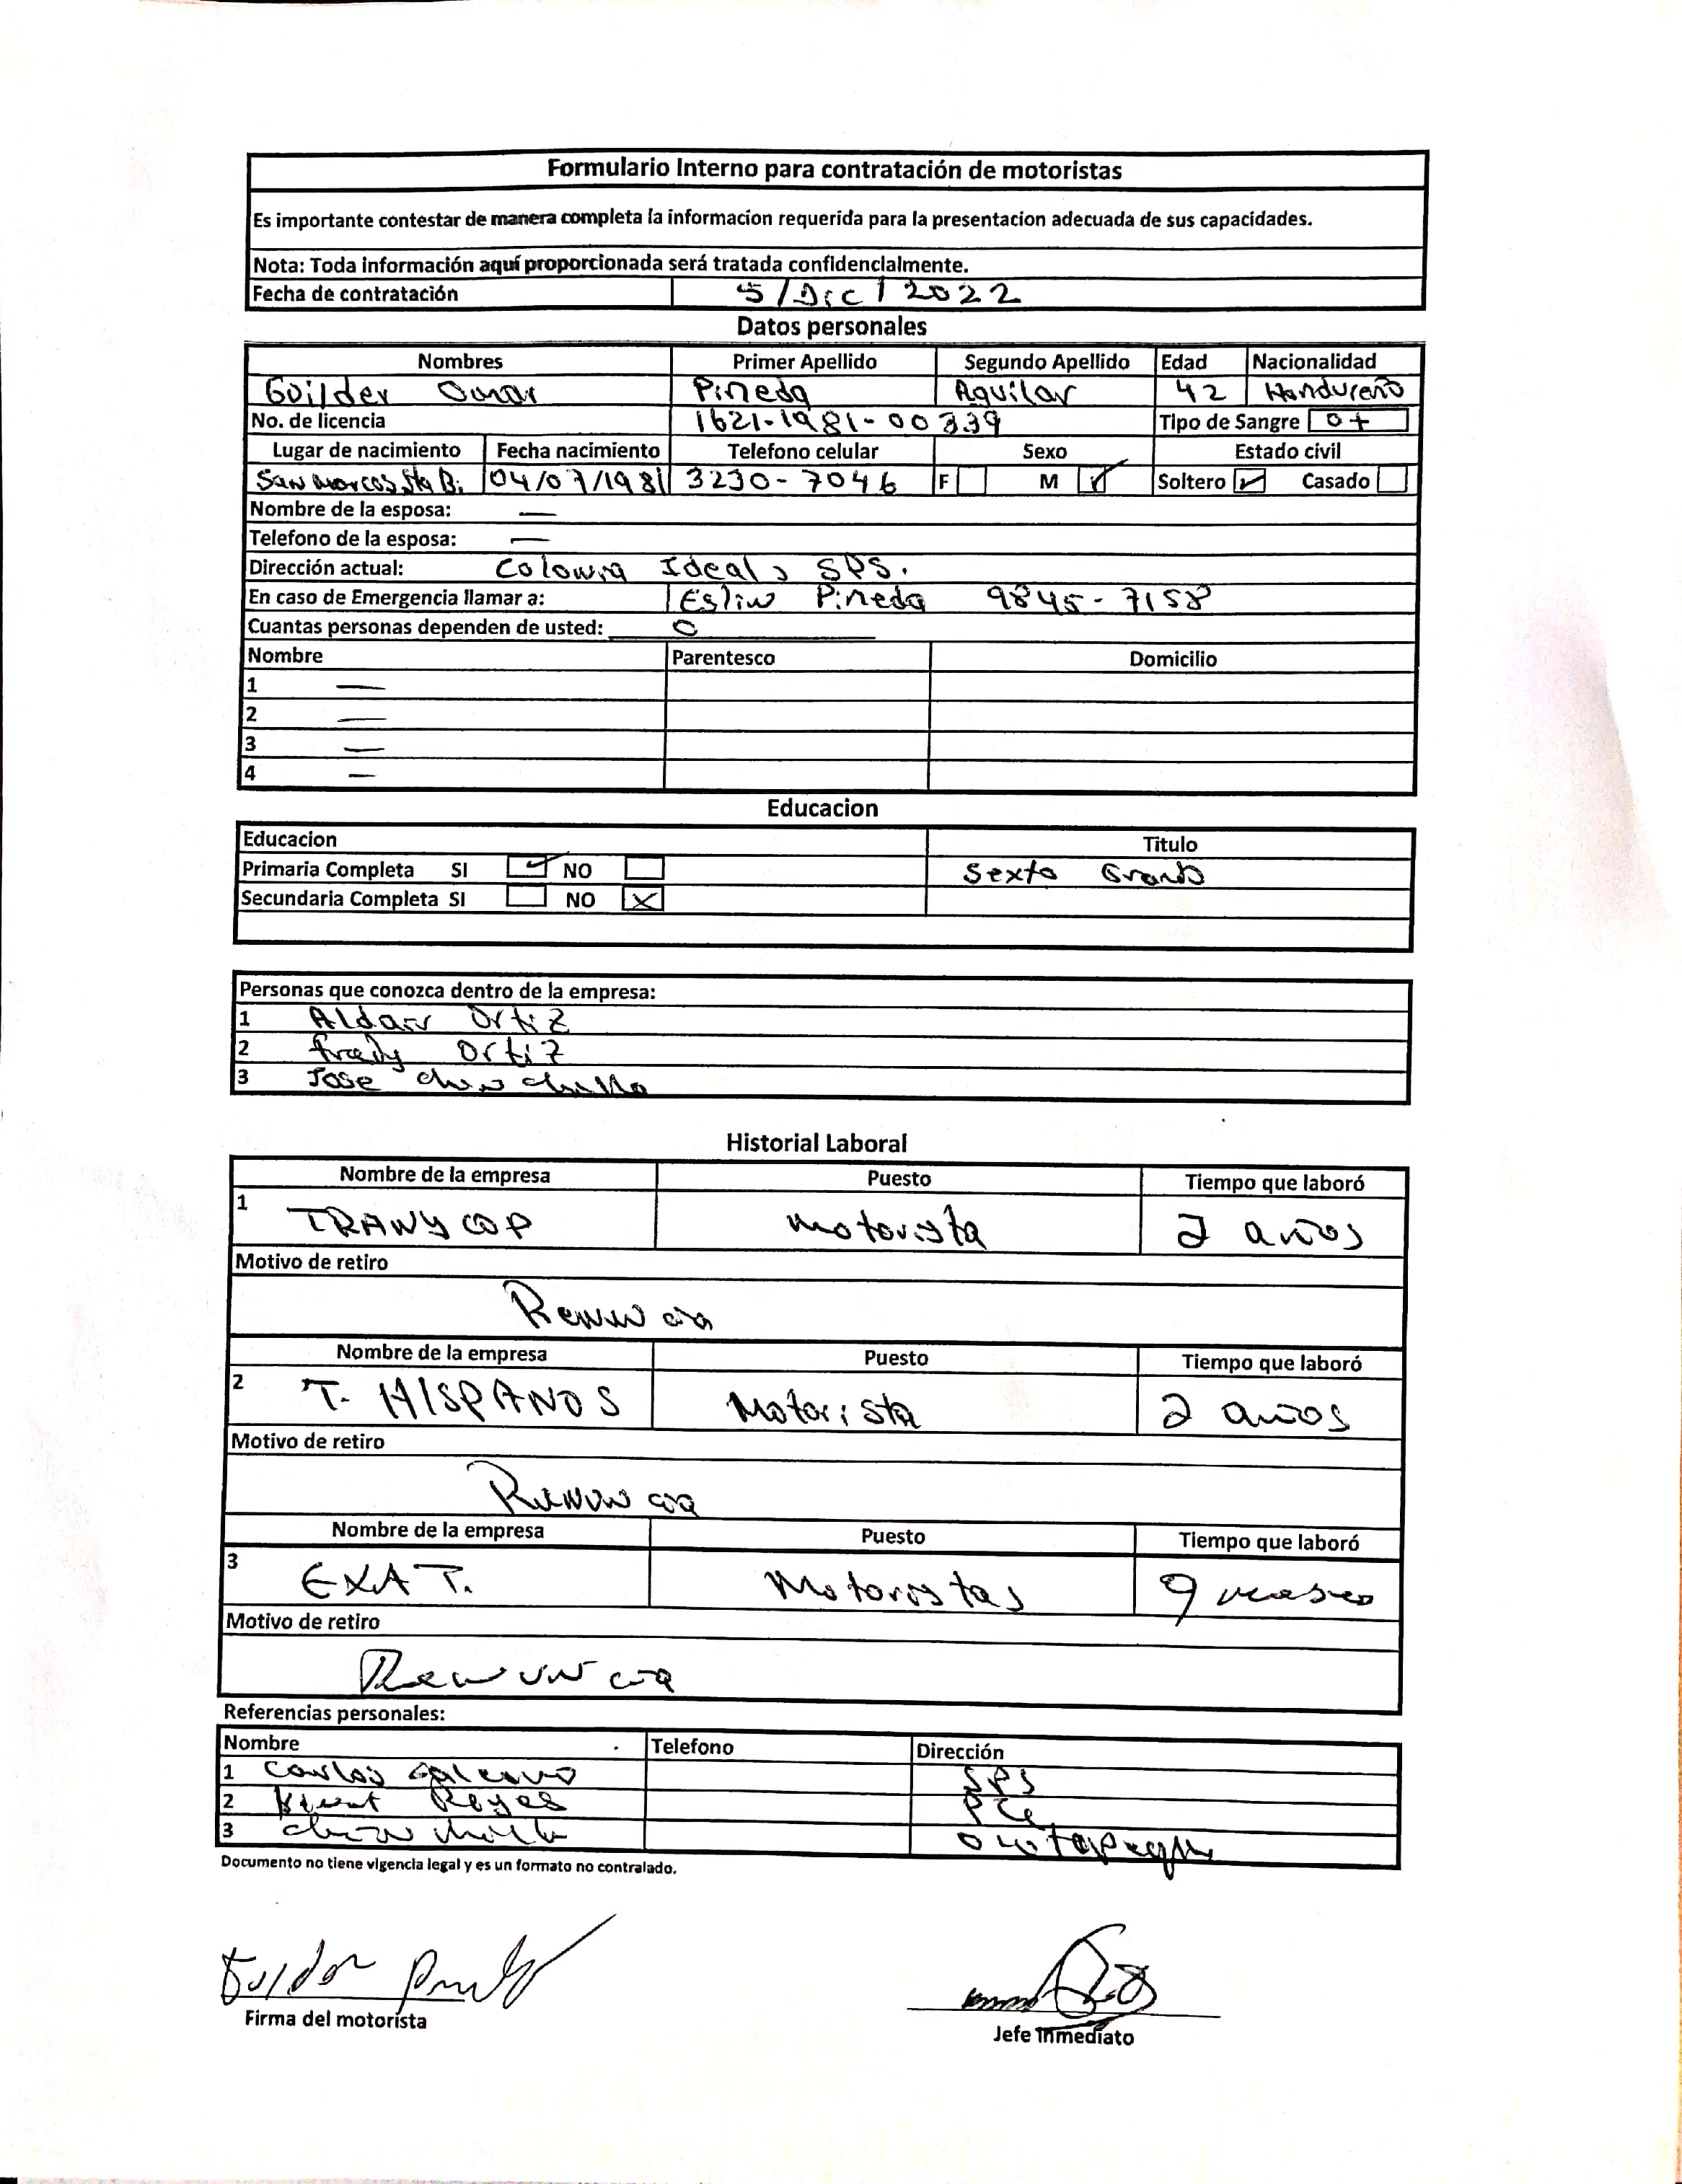 Formulario Interno para contratación de motoristas
Es importante contestar de manera completa la informacion requerida para la presentacion adecuada de sus capacidades.
Nota: Toda información aquí proporcionada será tratada confidencialmente.
Fecha de contratación 5/Dic/2022
Datos personales
Nombres Primer Apellido Segundo Apellido Edad Nacionalidad
Guilder Omar Pineda Aguilar 42 Hondureño
No. de licencia 1621-1981-00339 Tipo de Sangre O+
Lugar de nacimiento Fecha nacimiento Telefono celular Sexo Estado civil
San Marcos, Sta B. 04/07/1981 3230-7046 F M Soltero Casado
Nombre de la esposa: —
Telefono de la esposa: —
Dirección actual: Colonia Ideal, SPS.
En caso de Emergencia llamar a: Eslin Pineda 9845-7158
Cuantas personas dependen de usted: 0
Nombre Parentesco Domicilio
1 —
2 —
3 —
4 —
Educacion
Educacion Titulo
Primaria Completa SI NO Sexto Grado
Secundaria Completa SI NO
Personas que conozca dentro de la empresa:
1 Aldair Ortiz
2 Fredy Ortiz
3 Jose
Historial Laboral
Nombre de la empresa Puesto Tiempo que laboró
1 TRANYCOP motorista 2 años
Motivo de retiro
Renuncia
Nombre de la empresa Puesto Tiempo que laboró
2 T. HISPANOS Motorista 2 años
Motivo de retiro
Renuncia
Nombre de la empresa Puesto Tiempo que laboró
3 EXA T. Motoristas 9 meses
Motivo de retiro
Renuncia
Referencias personales:
Nombre Telefono Dirección
1 Carlos SPS
2 Reyes
3
Documento no tiene vigencia legal y es un formato no contralado.
Firma del motorista
Jefe Inmediato